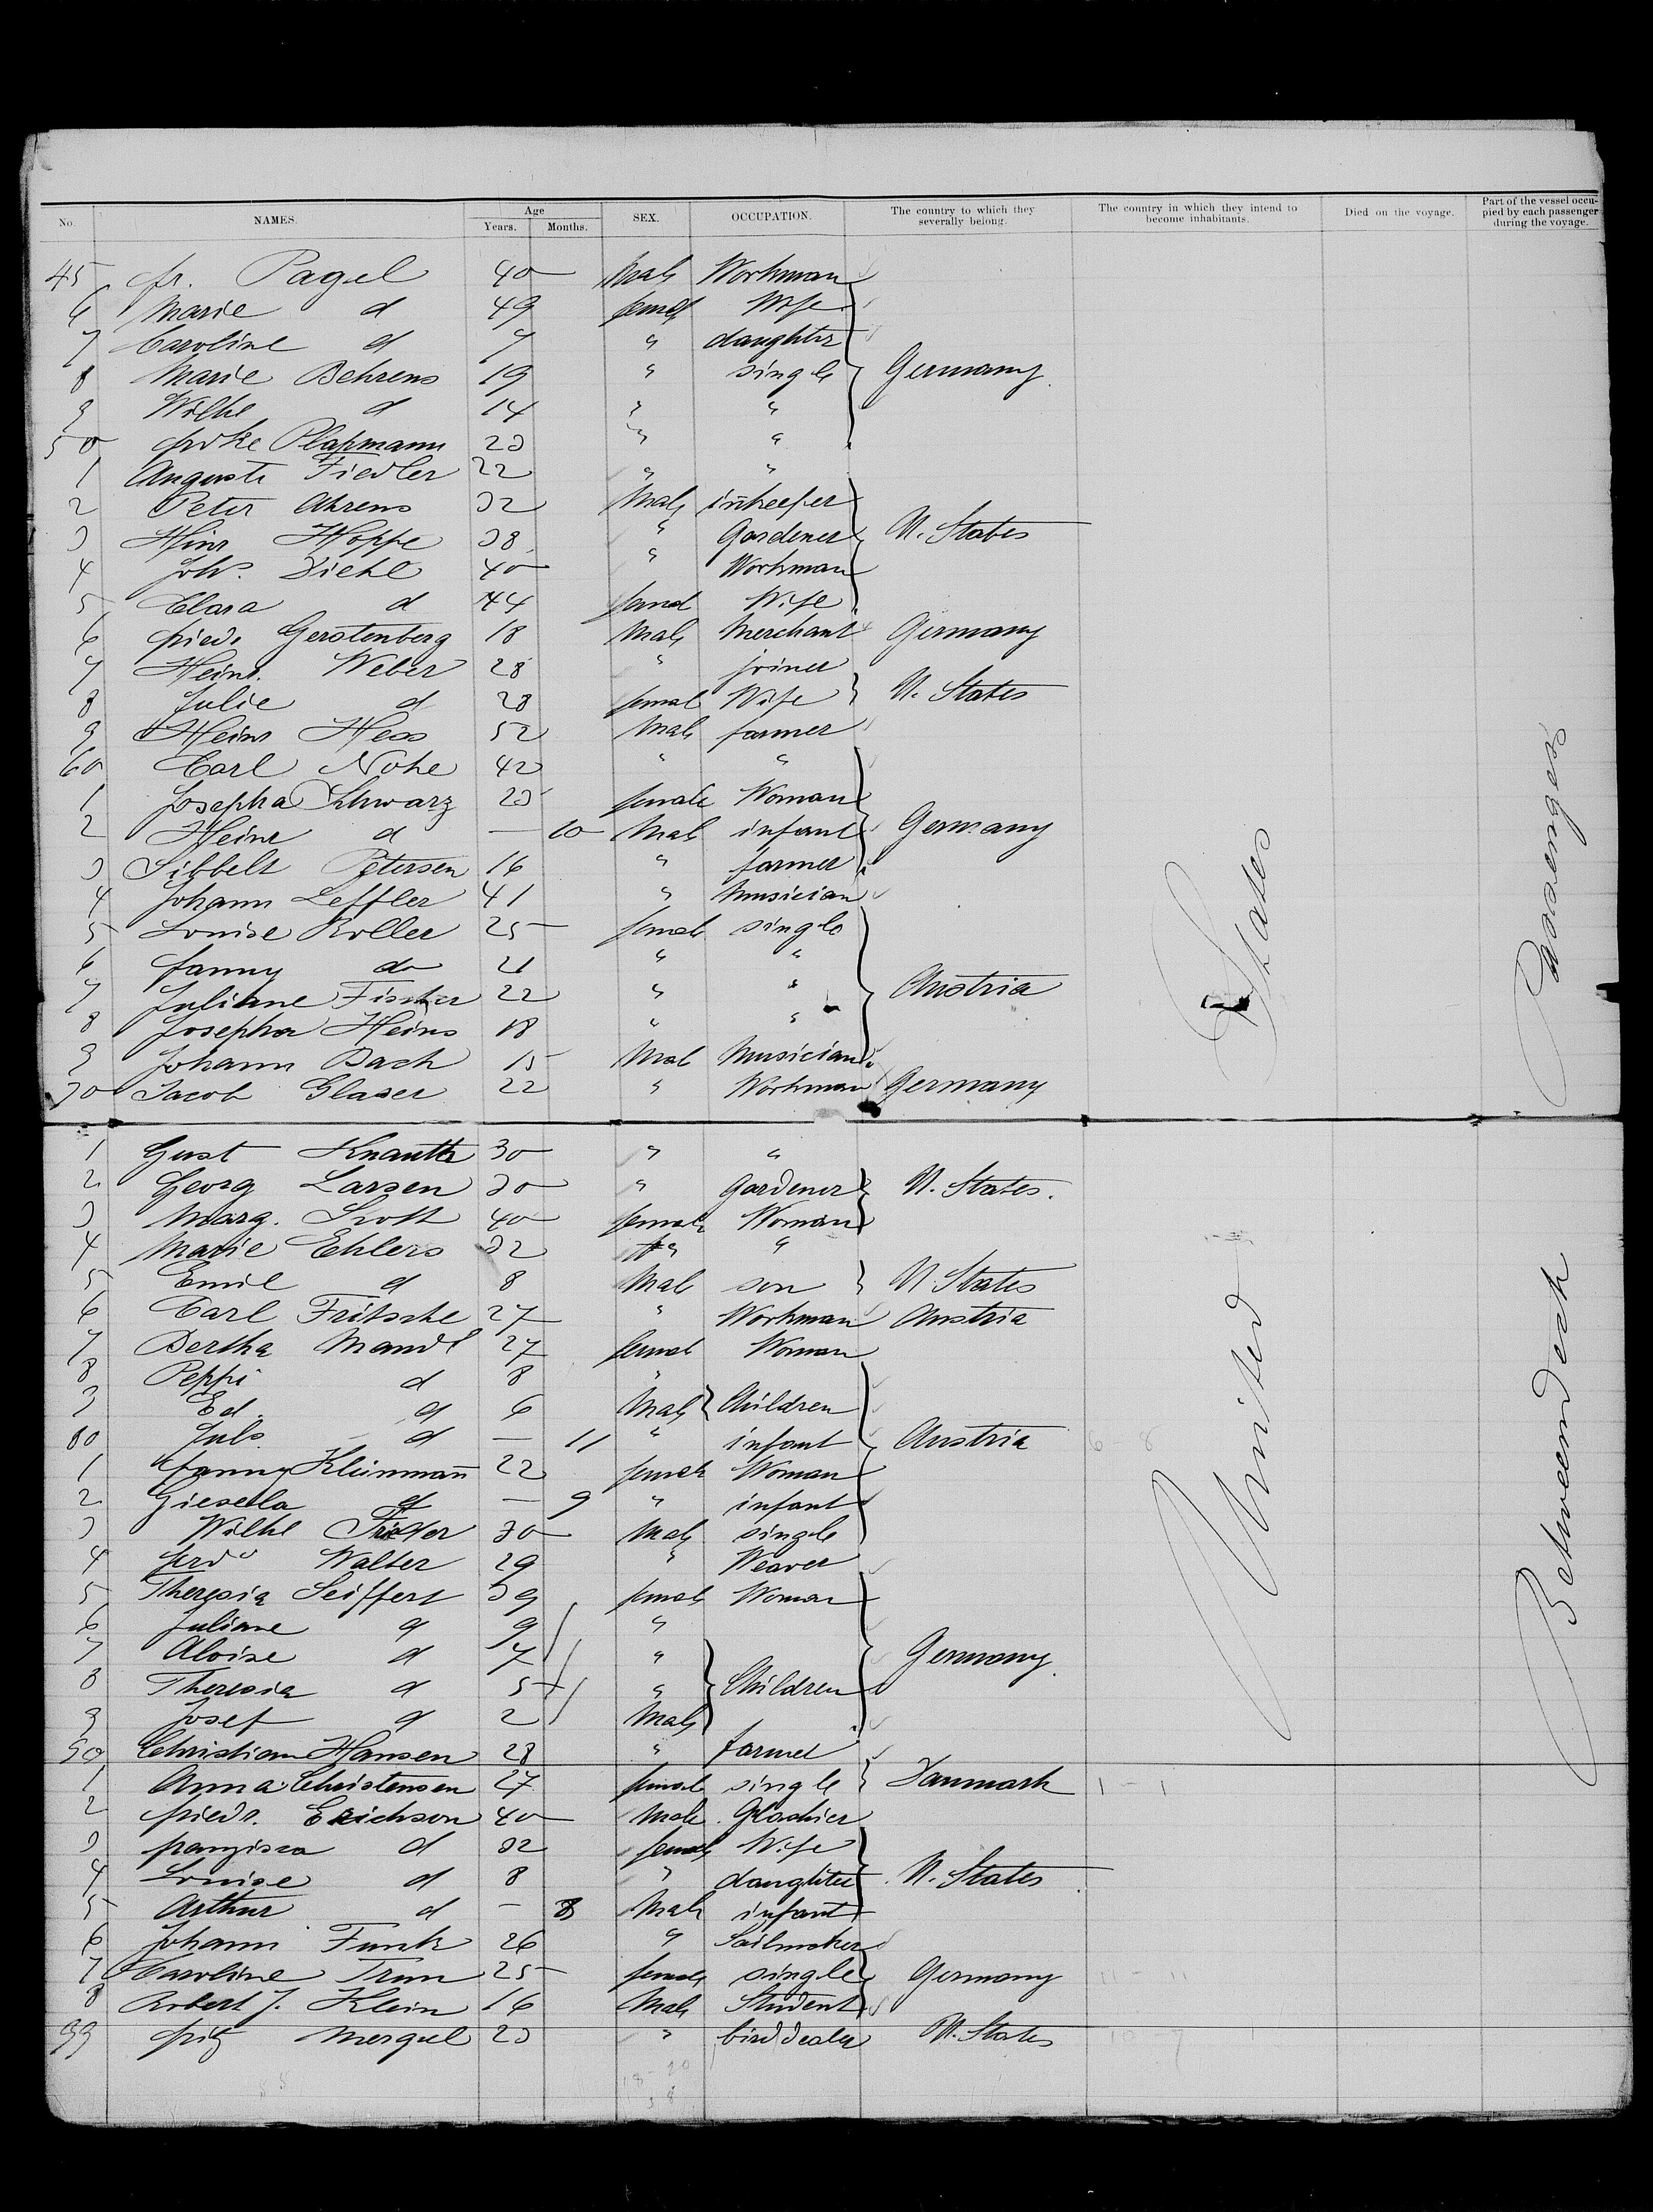 No. NAMES. Age Years. Months. SEX. OCCUPATION. The country to which they severally belong. The country in which they intend to become inhabitants. Died on the voyage. Part of the vessel occupied by each passenger during the voyage.
45 fr. Pagel 40 Male Workman
6 Marie d 49 femal Wife
7 Caroline d 7 " daughter
8 Marie Behrens 19 " single Germany
9 Wilhe d 14 " "
50 Plapmann 23 " "
1 Auguste Fiedler 22 " "
2 Peter Ahrens 32 Male innkeeper
3 Hinr Hoppe 38 " Gardener U. States
4 Joh. Diehl 40 " Workman
5 Clara d 44 femal Wife
6 friedr Gerstenberg 18 Male Merchant Germany
7 Heinr. Weber 28 " joiner
8 Julie d 28 femal Wife U. States
9 Heinr Hess 52 Male farmer
60 Carl Nohe 42 " "
1 Josepha Schwarz 23 female Woman
2 Heinr d — 10 Male infant Germany
3 Sibbelt Petersen 16 " farmer
4 Johann Leffler 41 " Musician
5 Louise Roller 25 femal single
6 fanny do 21 " "
7 Juliane Fischer 22 " " Austria
8 Josepha Heins 18 " "
9 Johann Bach 15 Male Musician
70 Jacob Glaser 22 " Workman Germany
1 Gust Knauth 30 " "
2 Georg Larsen 30 " Gardener U. States.
3 Marg. 40 female Woman
4 Marie Ehlers 32 " "
5 Emil d 8 Male son U States
6 Carl Fritsche 27 " Workman Austria
7 Bertha Mandl 27 femal Woman
8 Peppi d 8 "
9 Ed. d 6 Male Children
80 Juls d — 11 " infant Austria 6 - 8
1 fanny Kleinmañ 22 female Woman
2 Giesela d — 9 " infant
3 Wilhe 30 Male single
4 ferdd Walter 29 " Weaver
5 Theresia Seiffert 39 female Woman
6 Juliane d 9 "
7 Aloise d 7 " Germany
8 Theresia d 5 " Children
9 Josef d 2 Male
90 Christian Hansen 28 " farmer
1 Anna Christensen 27 femal single Danmark 1 - 1
2 friedr. Erichson 40 Male Glashier
3 franzisca d 32 female Wife
4 Louise d 8 " daughter U. States
5 Arthur d — 8 Male infant
6 Johann Funk 26 " Sailmaker
7 Caroline 25 female single Germany 11 - 11
8 Robert J. Klein 16 Male Student
99 fritz Mergel 23 " birddealer U. States
United States
Betweendeck Passengers